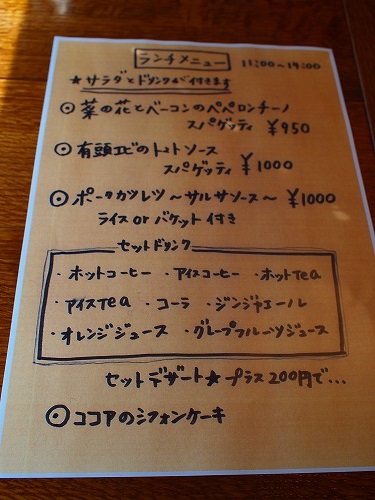 ランチメニュー 11:00~14:00
★サラダとドリンクが付きます
菜の花とベーコンのペペロンチーノ
スパゲッティ ¥950
有頭エビのトマトソース
スパゲッティ ¥1000
ポークカツレツ~サルサソース~ ¥1000
ライス or バケット付き
セットドリンク
・ホットコーヒー ・アイスコーヒー ・ホットtea
・アイスtea ・コーラ ・ジンジャエール
・オレンジジュース ・グレープフルーツジュース
セットデザート★プラス200円で...
ココアのシフォンケーキ